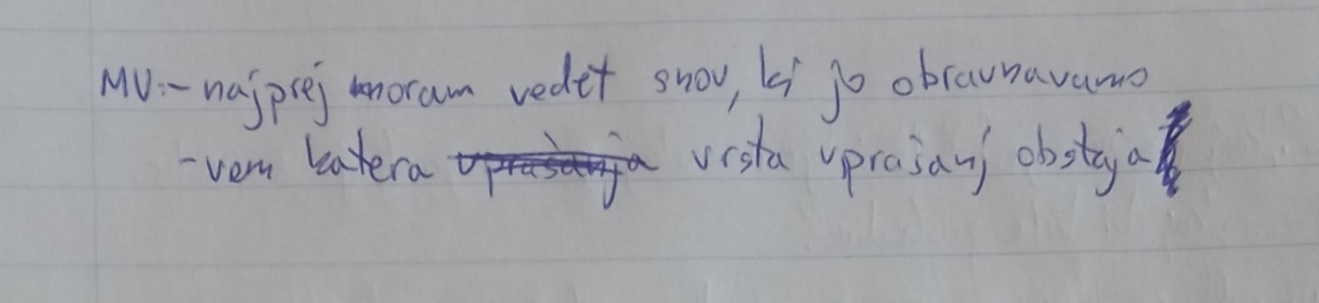 MU:- najprej moram vedet snov, ki jo obravnavamo
- vem katera vrsta uprašanj obstaja